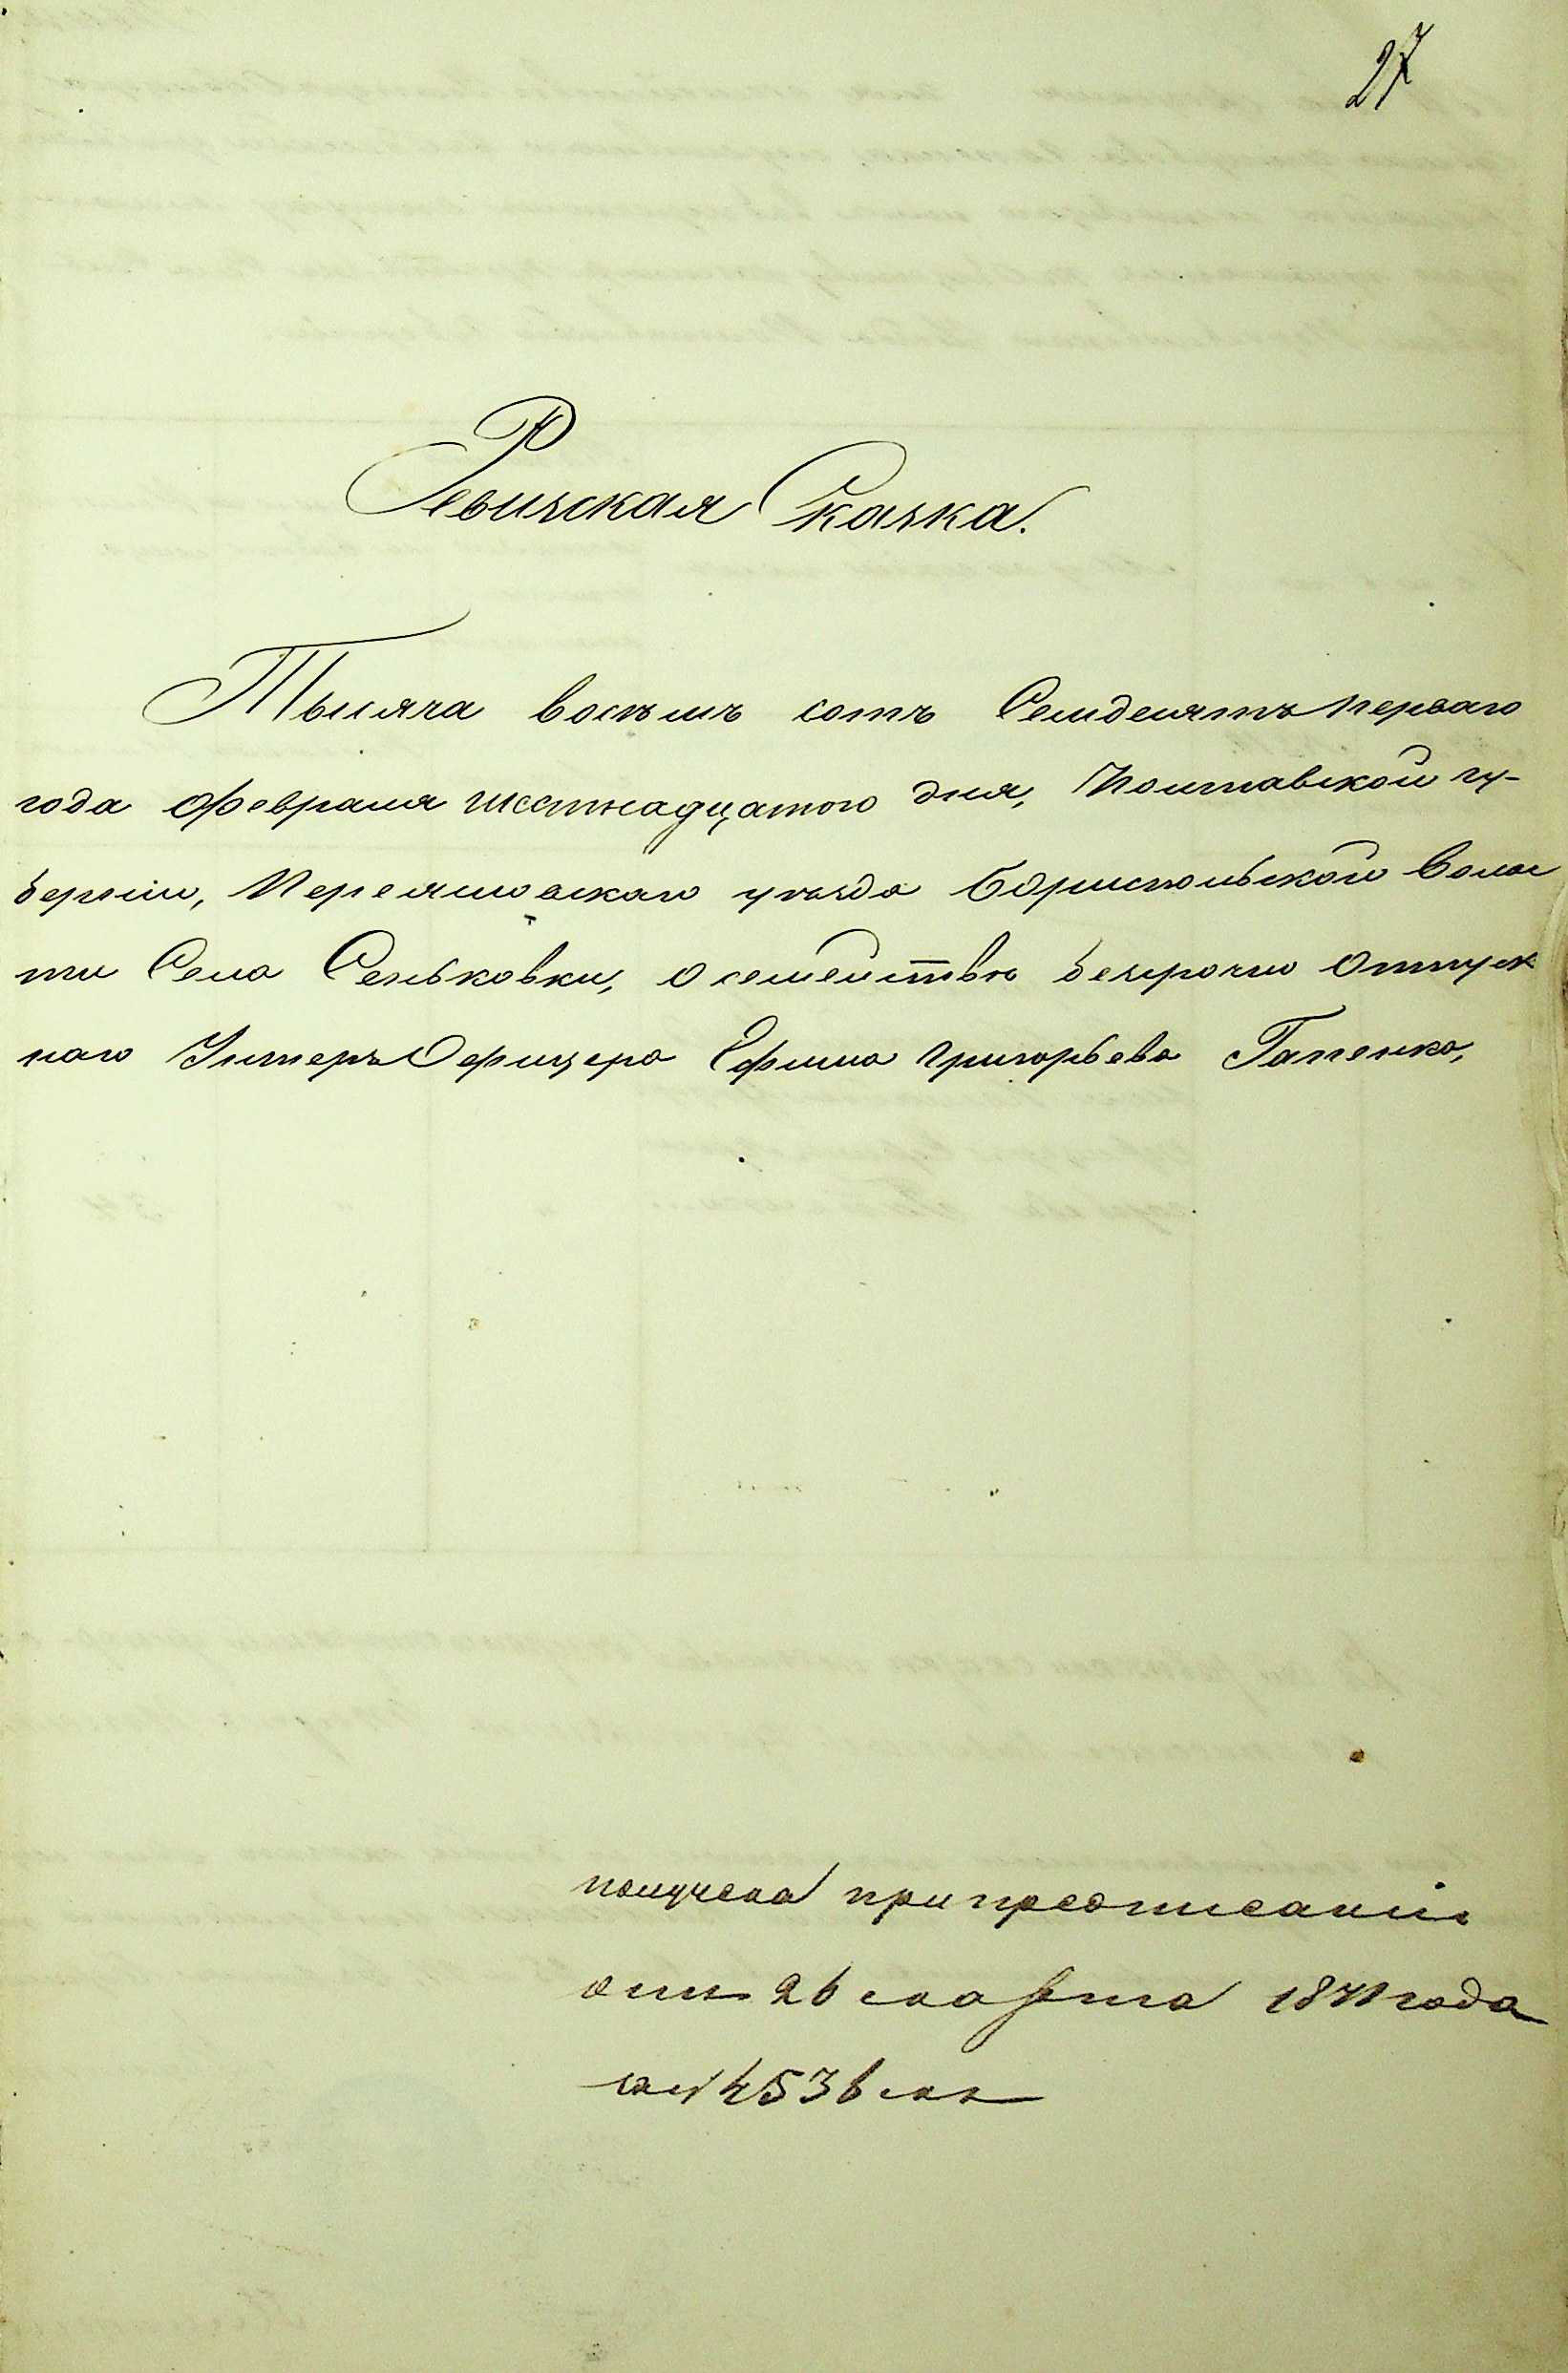 27
Ревизская Сказка.
Тысяча восемь сотъ Семдесятъ перваго
года февраля шестнадцатого дня, Полтавской гу-
берніи, Переяславскаго уѣзда Бориспольской Волос
ти Села Сеньковки, о семействѣ безсрочно Отпуск
наго Унтеръ Офицера Ефима Григорьева Гапенко,
получена при предписаніи
отъ 26 марта 1871 года
4536